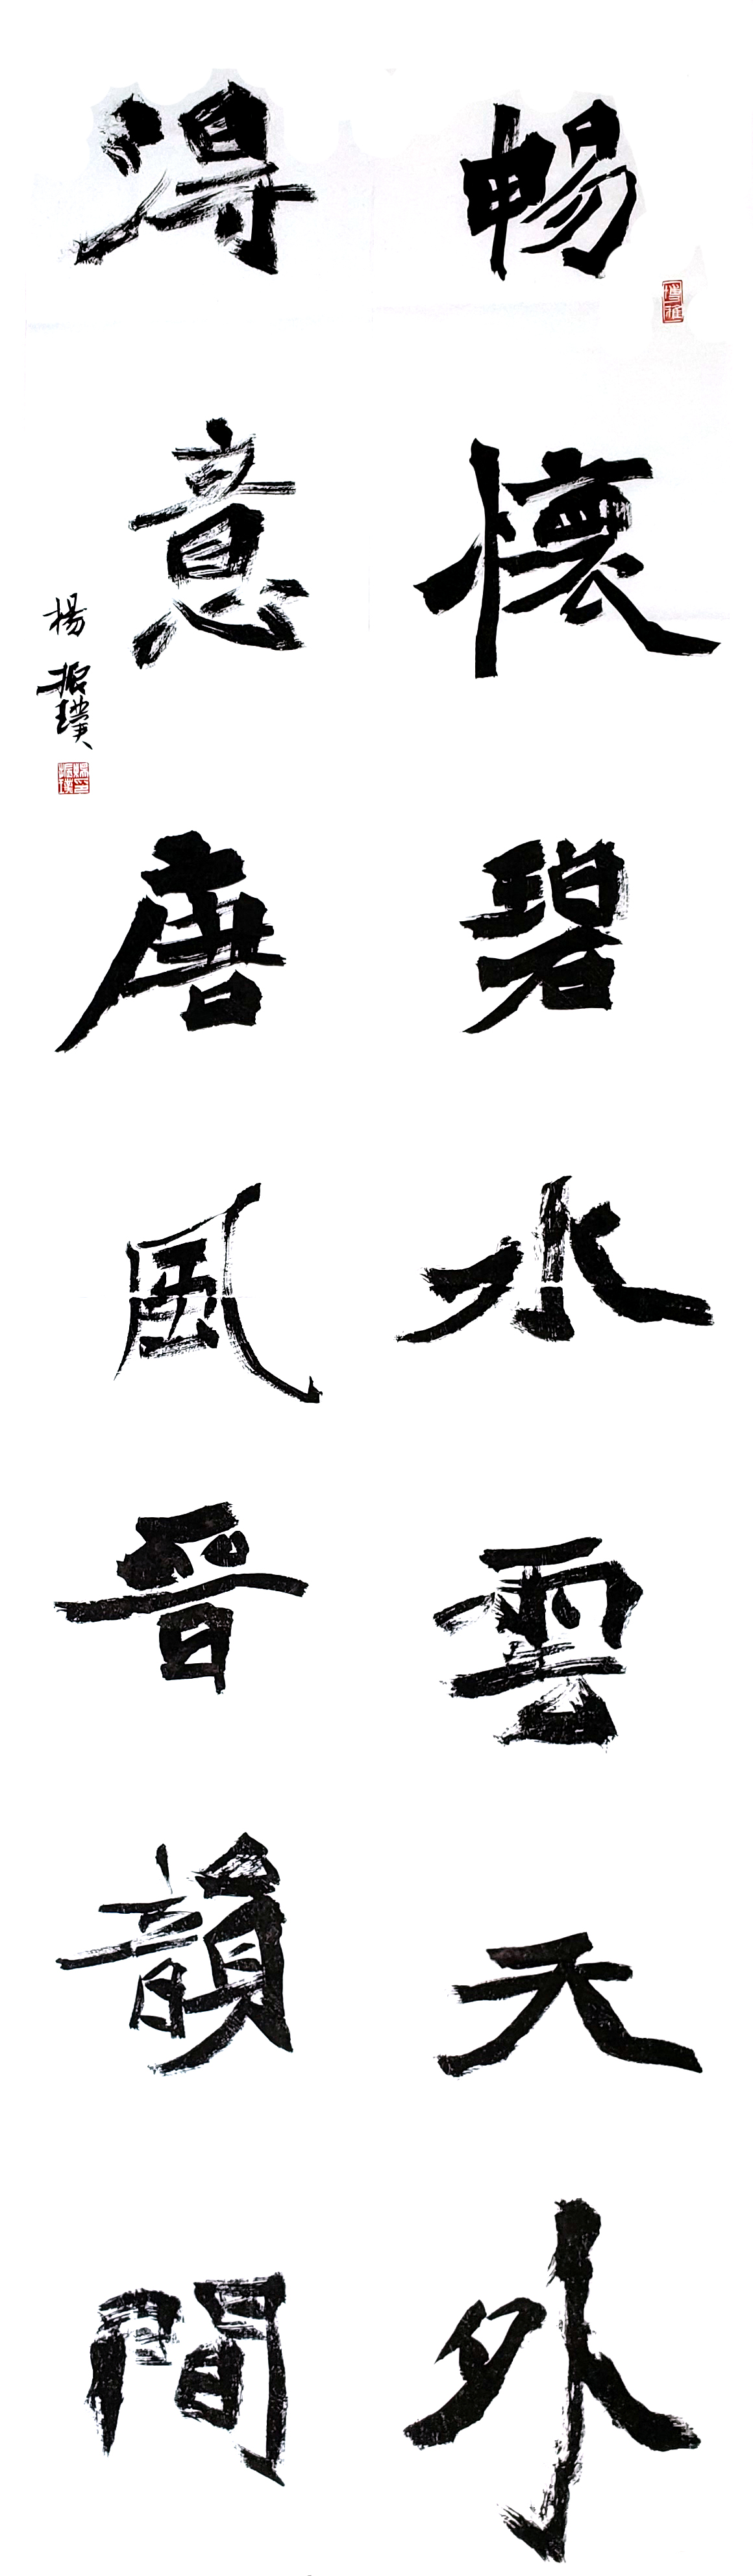 暢懷碧水雲天外
得意唐風晉韻間
楊振璞